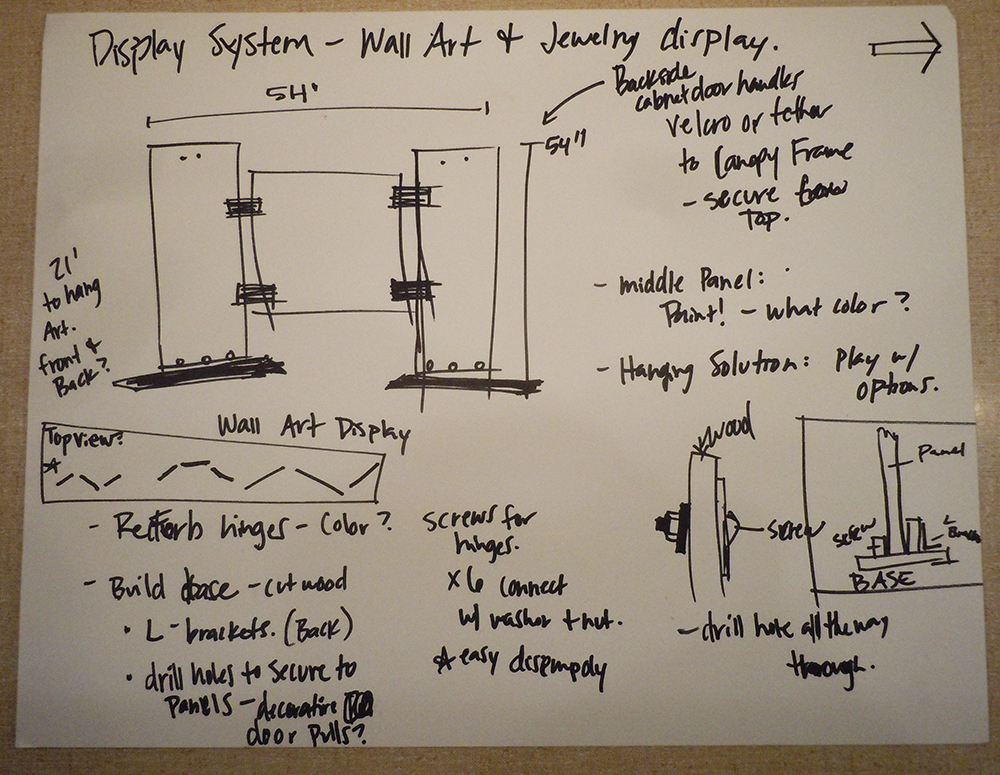 Display System - Wall Art & Jewelry display.
54"
Backside
cabnet door handles
velcro or tether
to Canopy Frame
- secure from
Top.
54"
21'
to hang
Art.
front &
Back?
- middle Panel:
Paint! - what color?
- Hanging Solution: Play w/
options.
Top view?
Wall Art Display
- hinges - Color?
- Build base - cut wood
• L-brackets. (Back)
• drill holes to secure to
Panels - decorative
door Pulls?
screws for
hinges.
x 6 connect
w/ washer + nut.
☆ easy
wood
screw
- drill hole all the way
through.
Panel
screw
L
BASE